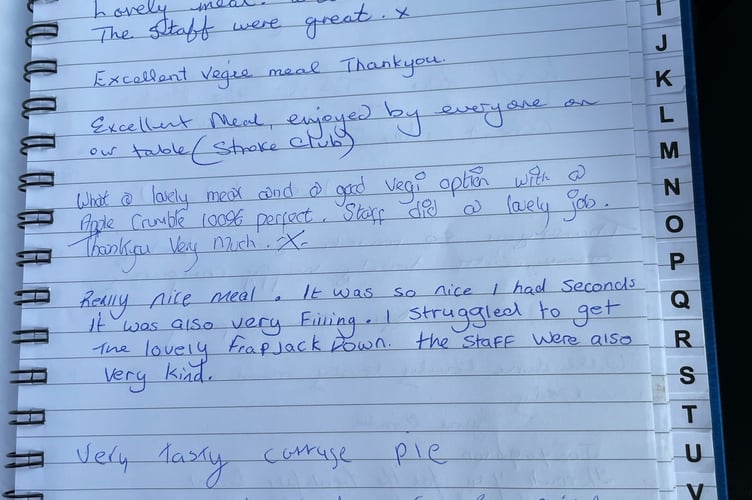 Lovely meal.
The Staff were great. x
Excellent Vegie meal Thankyou.
Excellent Meal, enjoyed by everyone on
our table (Stroke Club)
What a lovely meal and a good Vegi option with a
Apple Crumble 100% perfect. Staff did a lovely job.
Thankyou Very Much. X
Really nice meal. It was so nice I had Seconds
It was also very Filling. I struggled to get
The lovely Frapjack Down. the Staff were also
Very kind.
Very tasty cottage pie
I
J
K
L
M
N
O
P
Q
R
S
T
U
V